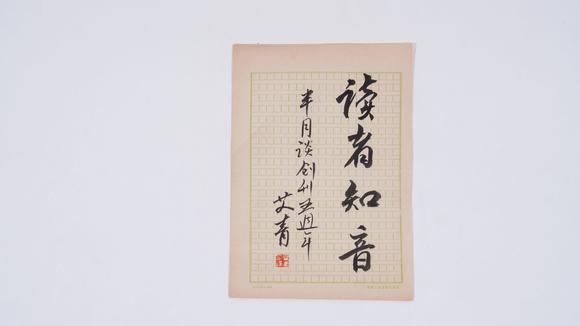 读者知音
半月谈创刊五週年
艾青